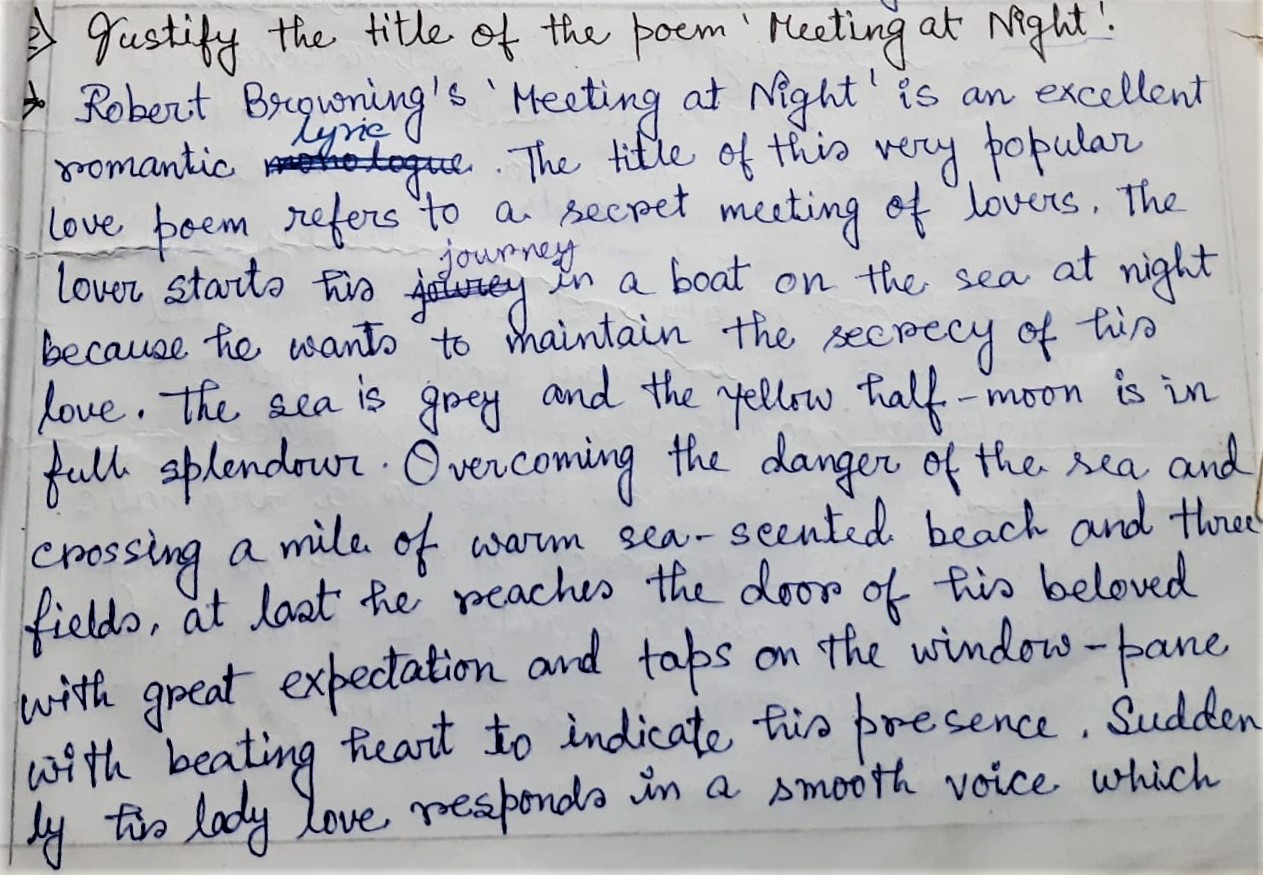 2) Justify the title of the poem 'Meeting at Night'.
→ Robert Browning's 'Meeting at Night' is an excellent
lyric
romantic monologue. The title of this very popular
love poem refers to a secret meeting of lovers. The
journey
lover starts his jourey in a boat on the sea at night
because he wants to maintain the secrecy of his
love. The sea is grey and the yellow half-moon is in
full splendour. Overcoming the danger of the sea and
crossing a mile of warm sea-scented beach and three
fields, at last he reaches the door of his beloved
with great expectation and taps on the window-pane
with beating heart to indicate his presence. Sudden
ly his lady love responds in a smooth voice which